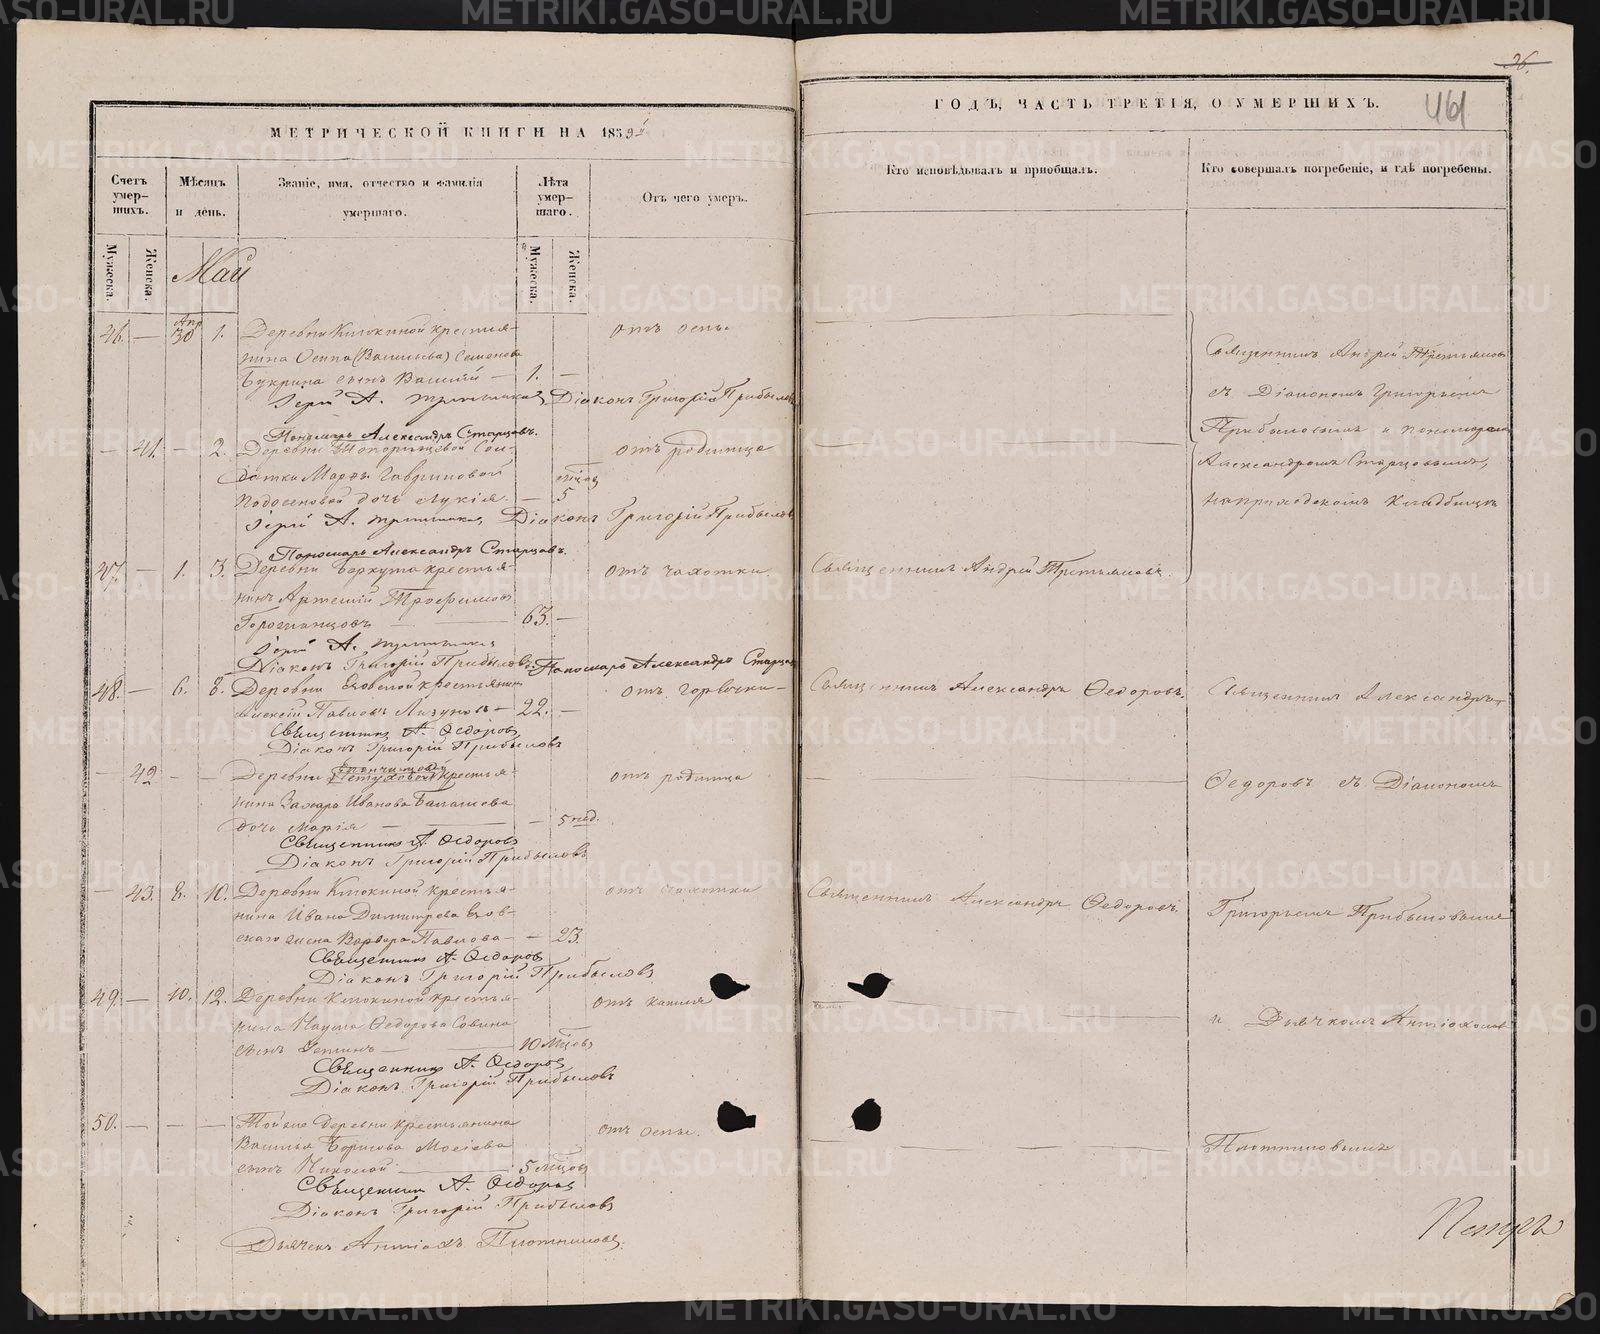 МЕТРИЧЕСКОЙ КНИГИ НА 1859й
Счетъ умерших.
Мужеска.
Женска.
Мѣсяцъ и день.
Званіе, имя, отчество и фамилія умершаго.
Лѣта умершаго.
Мужеска.
Женска.
Отъ чего умеръ.
Май
46. — Апр 30 1. Деревни Клюкиной крестья-
нина Осипа (Васильева) Семенова
Букрина сынъ Василій — 1. — отъ оспы
Іерей А. Третьяковъ Діаконъ Григорій Прибыловъ
Пономарь Александръ Старцовъ.
— 41. — 2. Деревни Сол-
датки Марѳы Гавриловой
дочь Лукія — 5 мѣсяц отъ родимца
Іерей А. Третьяковъ Діаконъ Григорій Прибыловъ
Пономарь Александръ Старцовъ.
47. — 1. 3. Деревни Беркута крестья-
нинъ Артемій Трофимовъ
63. — отъ чахотки
Іерей А. Третьяковъ
Діаконъ Григорій Прибыловъ Пономарь Александръ Старцовъ
48. — 6. 8. Деревни крестьянинъ
Алексій Павловъ Лизуновъ — 22. — отъ горячки —
Священникъ А. Ѳедоровъ
Діаконъ Григорій Прибыловъ
— 42 — — Деревни крестья-
нина Захара Иванова Балашева
дочь Марія — — 5 нед. отъ родимца
Священникъ А. Ѳедоровъ
Діаконъ Григорій Прибыловъ
— 43. 8. 10. Деревни Клюкиной крестья-
нина Ивана Димитрева Езов-
скаго жена Варвара Павлова — — 23. отъ чахотки
Священникъ А. Ѳедоровъ
Діаконъ Григорій Прибыловъ
49. — 10. 12. Деревни Клюкиной крестья-
нина Наума Ѳедорова Совина
сынъ — 10 мѣсцовъ отъ кашля
Священникъ А. Ѳедоровъ
Діаконъ Григорій Прибыловъ
50. — — — Той же деревни крестьянина
Василья Борисова Мосѣева
сынъ Николай — 5 мѣсцовъ отъ оспы.
Священникъ А. Ѳедоровъ
Діаконъ Григорій Прибыловъ
Дьячекъ Антіохъ Плотниковъ.
26.
461
ГОДЪ, ЧАСТЬ ТРЕТІЯ, О УМЕРШИХЪ.
Кто исповѣдывалъ и пріобщалъ.
Кто совершалъ погребеніе, и гдѣ погребены.
Священникъ Андрей Третьяковъ
съ Діакономъ Григорьемъ
Прибыловымъ и пономаремъ
Александромъ Старцовымъ,
на приходскомъ кладбищѣ
Священникъ Андрей Третьяковъ.
Священникъ Александръ Ѳедоровъ.
Священникъ Александръ
Ѳедоровъ съ Діакономъ
Священникъ Александръ Ѳедоровъ.
Григорьемъ Прибыловымъ
и Дьячкомъ Антіохомъ
Плотниковымъ
METRIKI.GASO-URAL.RU